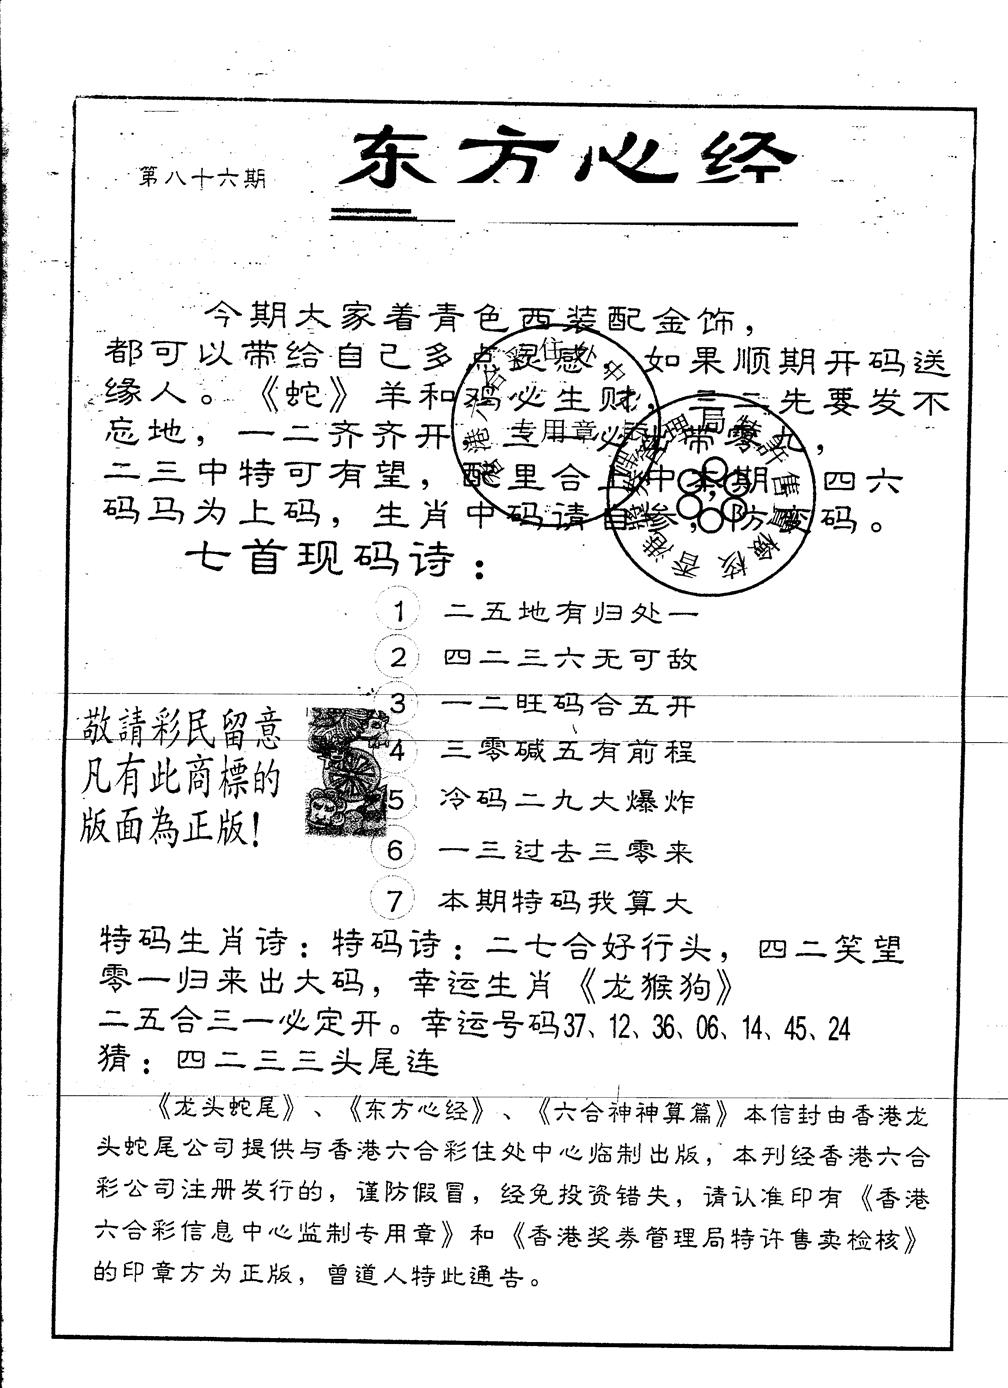 东方心经
第八十六期
今期大家着青色西装配金饰，
都可以带给自己多点灵感 如果顺期开码送
缘人。《蛇》羊和鸡必生财，三二先要发不
忘地，一二齐齐开，三一必 带零九，
二三中特可有望，配里合上中本期 四六
码马为上码，生肖中码请自惨，防 码。
七首现码诗：
1 二五地有归处一
2 四二三六无可敌
3 一二旺码合五开
4 三零碱五有前程
5 冷码二九大爆炸
6 一三过去三零来
7 本期特码我算大
敬請彩民留意
凡有此商標的
版面為正版！
特码生肖诗：特码诗：二七合好行头，四二笑望
零一归来出大码，幸运生肖《龙猴狗》
二五合三一必定开。幸运号码37、12、36、06、14、45、24
猜：四二三三头尾连
《龙头蛇尾》、《东方心经》、《六合神神算篇》本信封由香港龙
头蛇尾公司提供与香港六合彩住处中心临制出版，本刊经香港六合
彩公司注册发行的，谨防假冒，经免投资错失，请认准印有《香港
六合彩信息中心监制专用章》和《香港奖券管理局特许售卖检核》
的印章方为正版，曾道人特此通告。
专用章